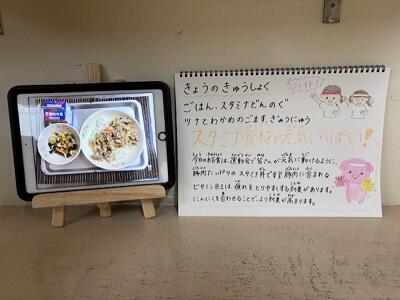 きょうのきゅうしょく
ごはん、スタミナどんのぐ
ツナとわかめのごまず、ぎゅうにゅう
スタミナ食材で元気いっぱい!
今日の給食は、運動会で皆さんが元気に動けるように、
豚肉たっぷりのスタミナ丼です!豚肉に含まれる
ビタミンB1は、疲れをとりやすくする効果があります。
にんにくを合わせることで、より効果が高まります。